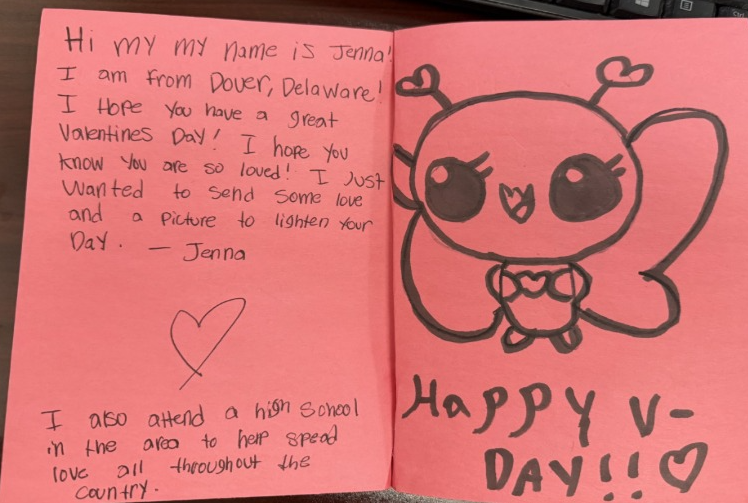 Hi my my name is Jenna!
I am from Dover, Delaware!
I Hope you have a great
Valentines Day! I hope you
know you are so loved! I Just
wanted to send some love
and a picture to lighten your
Day. — Jenna
I also attend a high school
in the area to help spead
love all throughout the
country.
HAPPY V-
DAY!!